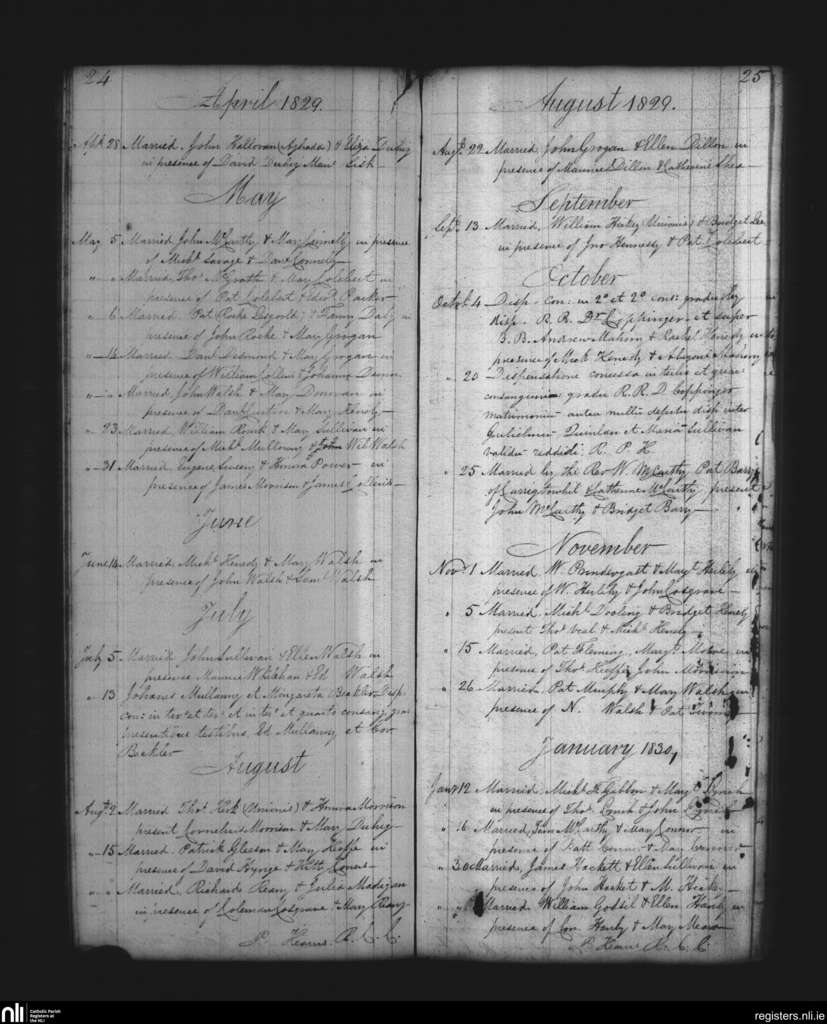 24
April 1829.
Apl. 28 Married John Halloran (Aghada) & Eliza Duhig
in presence of David Duhig Maur. Sisk
May
May 5 Married John McCarthy & Mary Connelly in presence
of Michl. Savage & Dave Connelly
" " Married Thos. McGrath & Mary Colebert in
presence of Pat Colebert & Parker
" 6 Married Pat Roche & Fanny Daly in
presence of John Roche & Mary Grogan
" 16 Married Danl. Desmond & Mary Grogan in
presence of William Collins & Johanna
" " Married John Walsh & Mary Donovan in
presence of Dan & Mary
" 23 Married William & Mary Sullivan in
presence of Michl. Mullowny & Wil Walsh
" 31 Married Eugene & Honora Power in
presence of James Morrison & James
June
June 14 Married Michl. Henedy & Mary Walsh in
presence of John Walsh & Walsh
July
July 5 Married John Sullivan & Ellen Walsh in
presence Maurice Whelehan & Ed Walsh
" 13 Johanes Mullowny et Margarita Beckler Disp
con: in ter: et ter: et in ter: et quarto consang. gra
presentibus testibus Ed Mullowny et Cor
Beckler
August
Augt. 2 Married Thos. (Unionis) & Honora Morrison
present Cornelius Morrison & Mary Duhig
" 15 Married Patrick Gleson & Mary Keeffe in
presence of David & Kitty
" " Married Richard Reary & Julia Madigan
in presence of Coleman Cosgrave & Mary Reary
P. Hearne R. C. C.
25
August 1829.
Augt. 22 Married John Grogan & Ellen Dillon in
presence of Maurice Dillon & Catherine Shea
September
Sept. 13 Married William (Unionis) & Bridget
in presence of Jno Hennessy & Pat Colebert
October
Octobr. 4 Disp. con: in 2o et 2o cons: gradu by
Disp. R. R. Dr. Coppinger et super
3. B. Andrew Mahony & Rachel Henedy in
presence of Mick Henedy & Abigail
" 20 Dispensatione concessa in tertio et quarto
consanguin: gradu R. R. D Coppinger
matrimonium antea nulli defectu disp inter
Gulielmum Quinlan et Maria Sullivan
valide reddidi R. P. H
" 25 Married by the Rev W. McCarthy Pat Barry
of Carrigtwohil & Catherine McCarthy present
John McCarthy & Bridget Barry
November
Novr. 1 Married W. Prendergast & Margt. Herlihy in
presence of W. Herlihy & John Cosgrave
" 5 Married Michl. Dooling & Bridget Henedy
present Thos. Veal & Michl. Henedy
" 15 Married Pat Fleming Margt. in
presence of Thos. Keeffe John Morrison
" 26 Married Pat Murphy & Mary Walsh in
presence of N. Walsh & Pat
January 1830,
Jany. 12 Married Michl. Fz Gibbon & Margt. Lynch
in presence of Thos. & John Lynch
" 16 Married John McCarthy & Mary Connor in
presence of Patt Connor & Connor
" 30 Married James Hackett & Ellen Sullivan in
presence of John Hacket & M.
" " Married William Godsil & Ellen in
presence of Con. & Mary
P. Hearne R. C. C
nli
Catholic Parish
Registers at
the NLI
registers.nli.ie